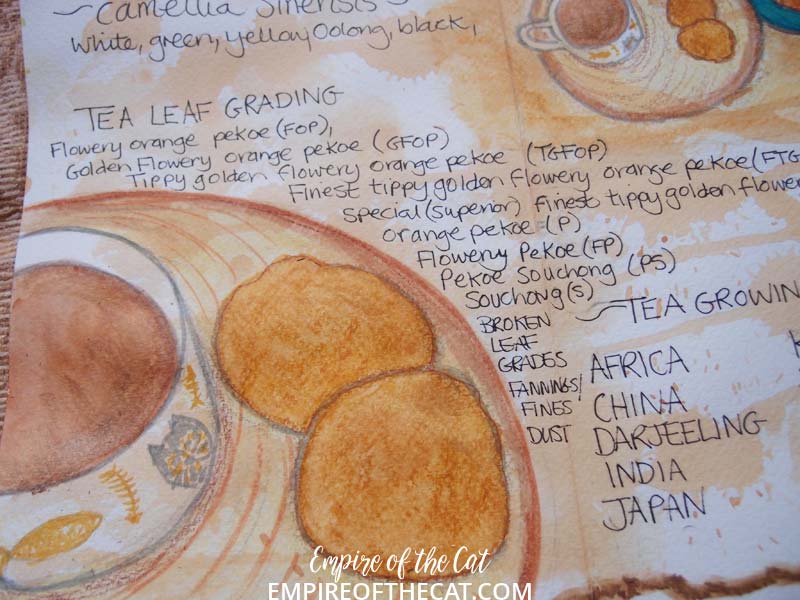 ~Camellia Sinensis
White, green, yellow, Oolong, black,
TEA LEAF GRADING
Flowery orange pekoe (FOP),
Golden Flowery orange pekoe (GFOP)
Tippy golden flowery orange pekoe (TGFOP)
Finest tippy golden flowery orange pekoe (FTG
special (superior) Finest tippy golden flower
orange pekoe (P)
Flowery Pekoe (FP)
Pekoe Souchong (PS)
Souchong (S)
BROKEN
LEAF
GRADES
FANNINGS/
FINES
DUST
~TEA GROWIN
AFRICA
CHINA
DARJEELING
INDIA
JAPAN
Empire of the Cat
EMPIREOFTHECAT.COM